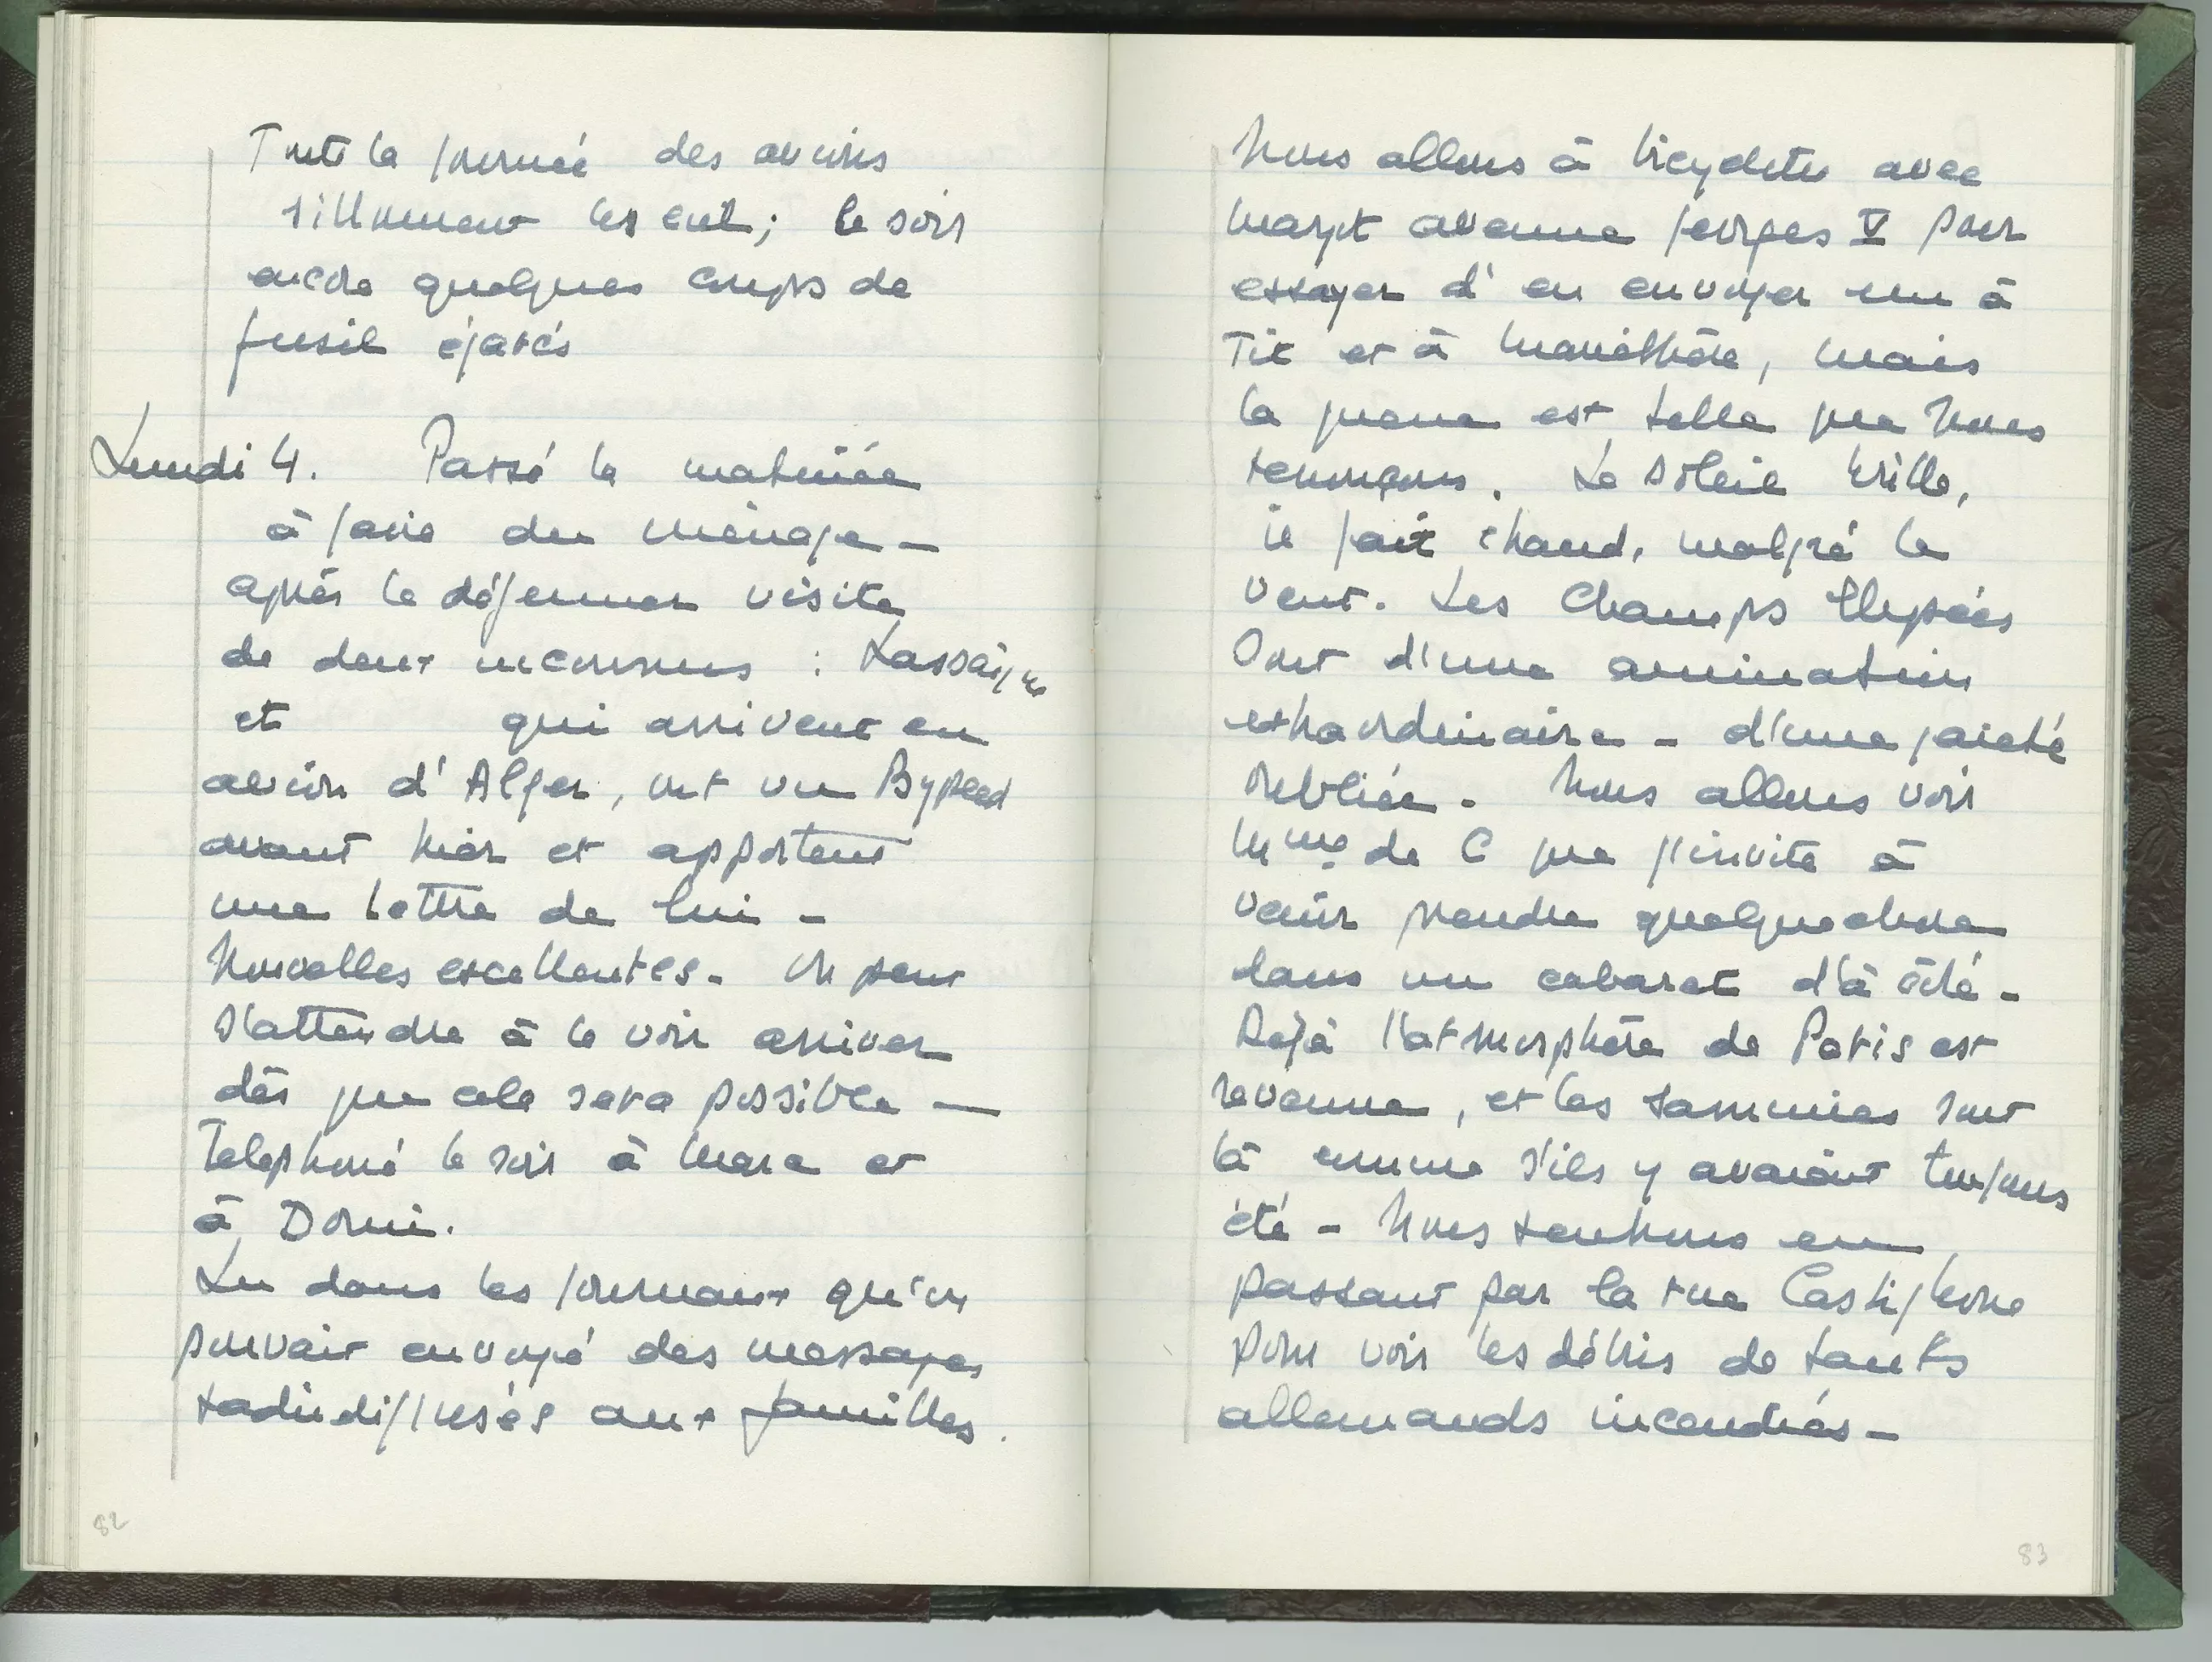 Toute la journée des avions
sillonnent les ciel ; le soir
encore quelques coups de
fusil égarés
Lundi 4. Passé la matinée
à faire du ménage –
après le déjeuner visite
de deux inconnus : Lassaigne
et qui arrivent en
avion d'Alger, ont vu
avant hier et apportent
une lettre de lui –
Nouvelles excellentes – On peut
s'attendre à le voir arriver
dès que cela sera possible —
Telephoné le soir à Mara et
à Domi.
Lu dans les journaux qu'on
pouvait envoyé des messages
radiodiffusés aux familles.
82
Nous allons à bicyclette avec
Margot avenue Georges V pour
essayer d'en envoyer un à
Tit et à , mais
la queue est telle que nous
renonçons. Le soleil brille,
il fait chaud, malgré le
vent. Les Champs Elysées
sont d'une animation
extraordinaire – d'une gaieté
oubliée – Nous allons voir
Mme de C que j'invite à
venir prendre quelque chose
dans un cabaret d'à côté –
Déjà l'atmosphère de Paris est
revenue, et les sammies sont
là comme s'ils y avaient toujours
été – Nous rentrons en
passant par la rue Castiglione
pour voir les débris de tanks
allemands incendiés –
83